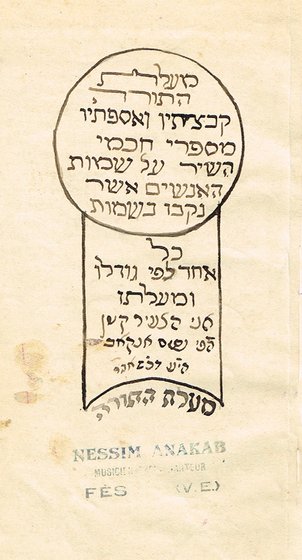 מעלת
התורה
קבצתיו ואספתיו
מספרי חכמי
השיר על שמות
האנשים אשר
נקבו בשמות
כל
אחד לפי גודלו
ומעלתו
אני הצעיר קטן
סעלת התורה
NESSIM ANAKAB
FÈS (V.E.)